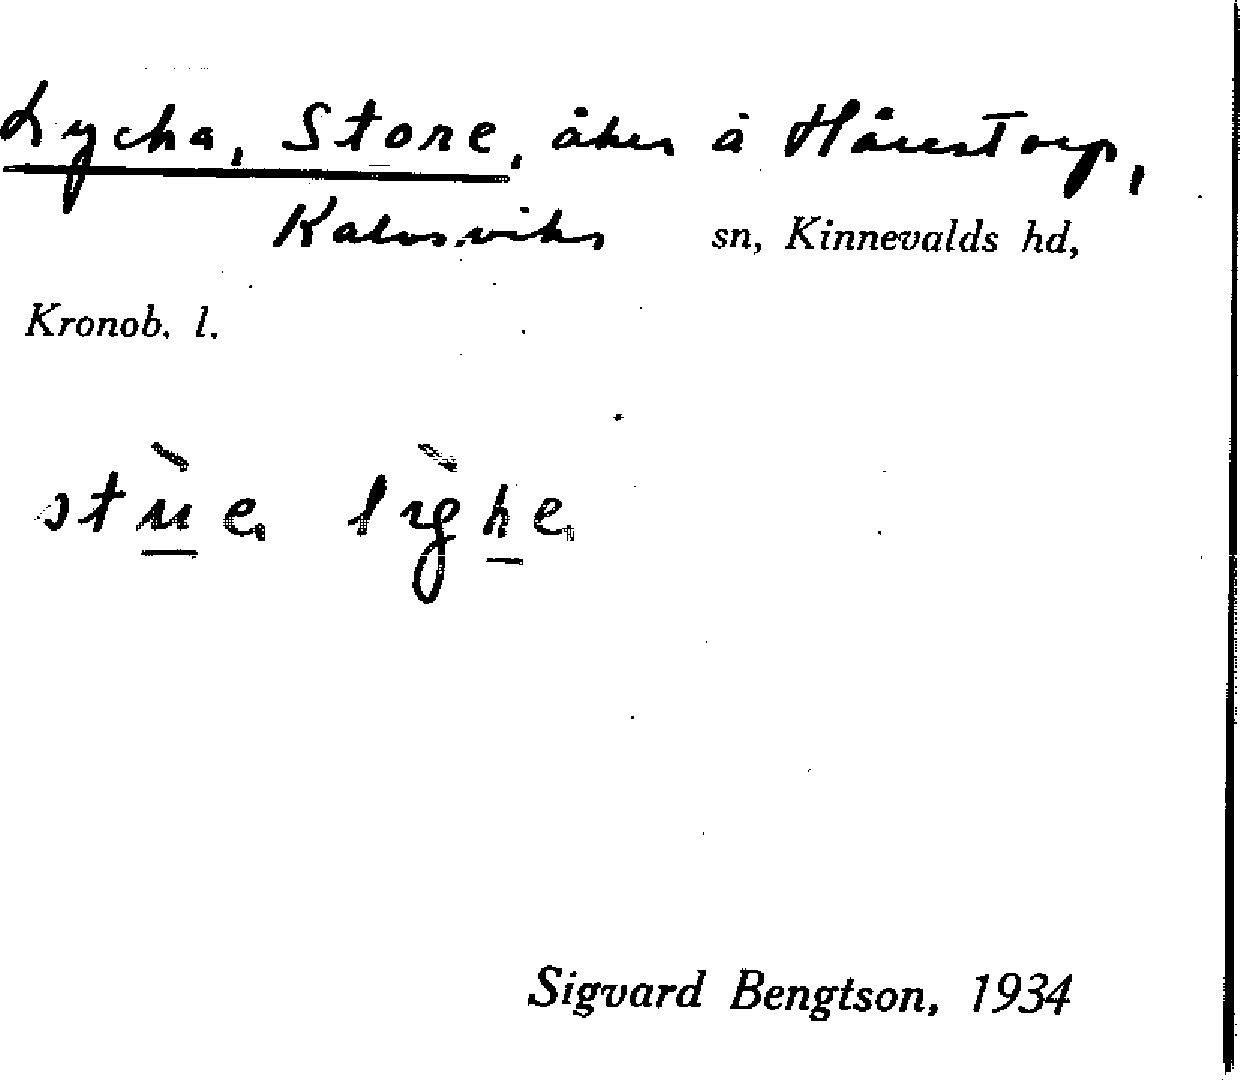 Lycka, Store, åker å Hårestorp,
Kalvsviks sn, Kinnevalds hd,
Kronob. l.
Sigvard Bengtson, 1934